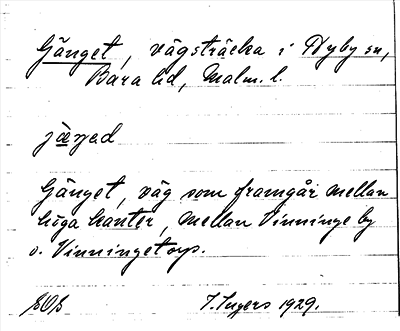 Gänget, vägsträcka i Hyby sn,
Bara hd, Malm. l.
Gänget, väg som framgår mellan
höga kanter, mellan Vinninge by
o. Vinningetorp.
I. Ingers 1929.